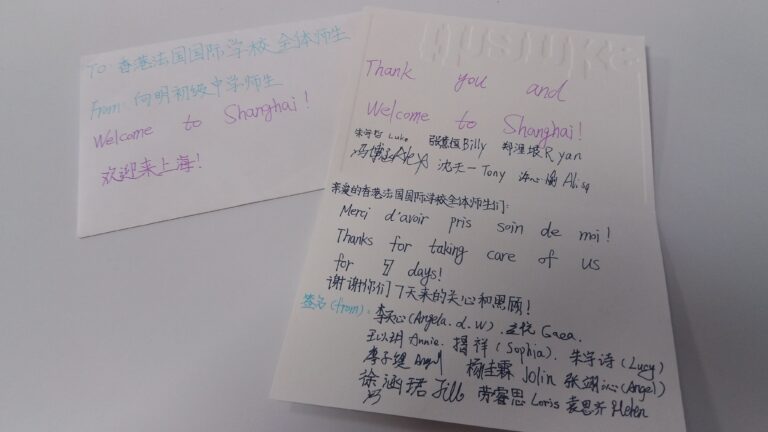 TO: 香港法国国际学校 全体师生
From: 向明初级中学师生
Welcome to Shanghai!
欢迎来上海!
Thank you and
Welcome to Shanghai!
Luke Billy Ryan
沈天一 Tony Alisa
亲爱的香港法国国际学校全体师生们:
Merci d'avoir pris soin de moi!
Thanks for taking care of us
for 7 days!
谢谢你们7天来的关心和照顾!
签名(from): (Angela.d.W). Gaea.
Annie. (Sophia). (Lucy)
Angel 杨佳霖 Jolin (Angel)
徐涵珺 Jill 劳睿思 Loris Helen